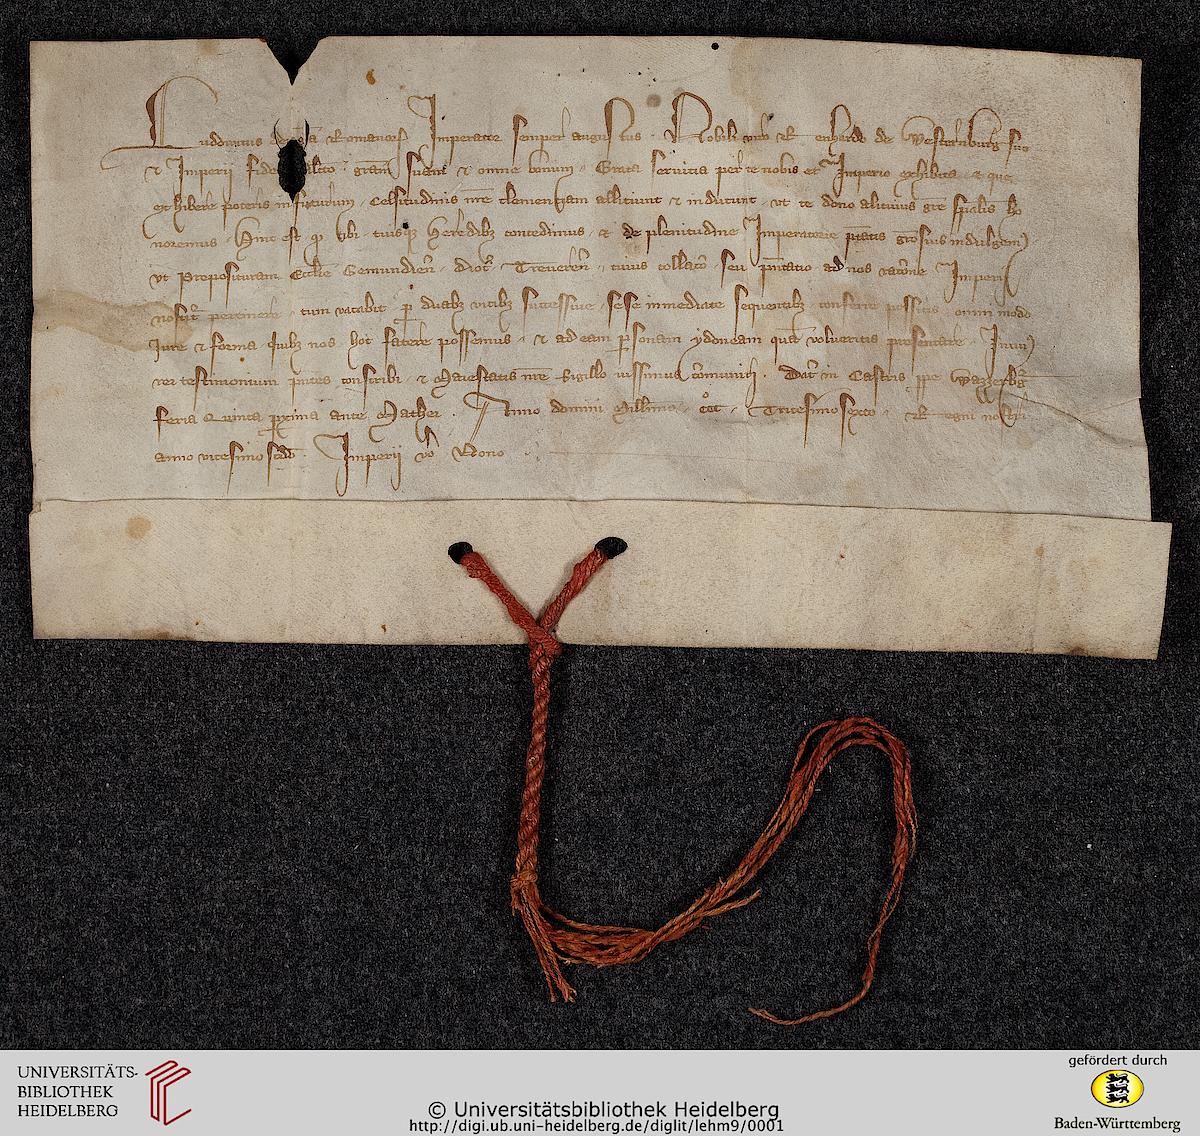 Ludowicus Romanorum Imperator semper augustus. Nobili viro Reinhardo de Westerburg suo
et Imperii fideli gratiam suam et omne bonum. Grata servitia per te nobis et Imperio exhibita et que
exhibere poteris in futurum, Celsitudinis nostre clementiam alliciunt et inducunt, ut te dono alicuius gratie specialis ho
noremus. Hinc est quod tibi tuisque heredibus concedimus et de plenitudine Imperatorie potestatis graciosius indulgem
ut preposituram Ecclesie Gemundien dioc Treveren, cuius collatio seu presentatio ad nos ratione Imperii
nostri pertinere, cum vacabit per duabus vicibus successive sese inmediate sequentibus conferre possitis omni modo
Iure et forma quibus nos hoc facere possemus et ad eam personam ydoneam quam volueritis presentare. In cui
rei testimonium presentes conscribi et Maiestatis nostre Sigillo iussimus communiri. Dat in Castris prope Wazzerbg
feria Quinta proxima ante Mathei. Anno domini Millesimo CCC Tricesimosexto. Regni nostri
anno vicesimo secundo Imperii vero Nono
UNIVERSITÄTS-
BIBLIOTHEK
HEIDELBERG
© Universitätsbibliothek Heidelberg
http://digi.ub.uni-heidelberg.de/diglit/lehm9/0001
gefördert durch
Baden-Württemberg